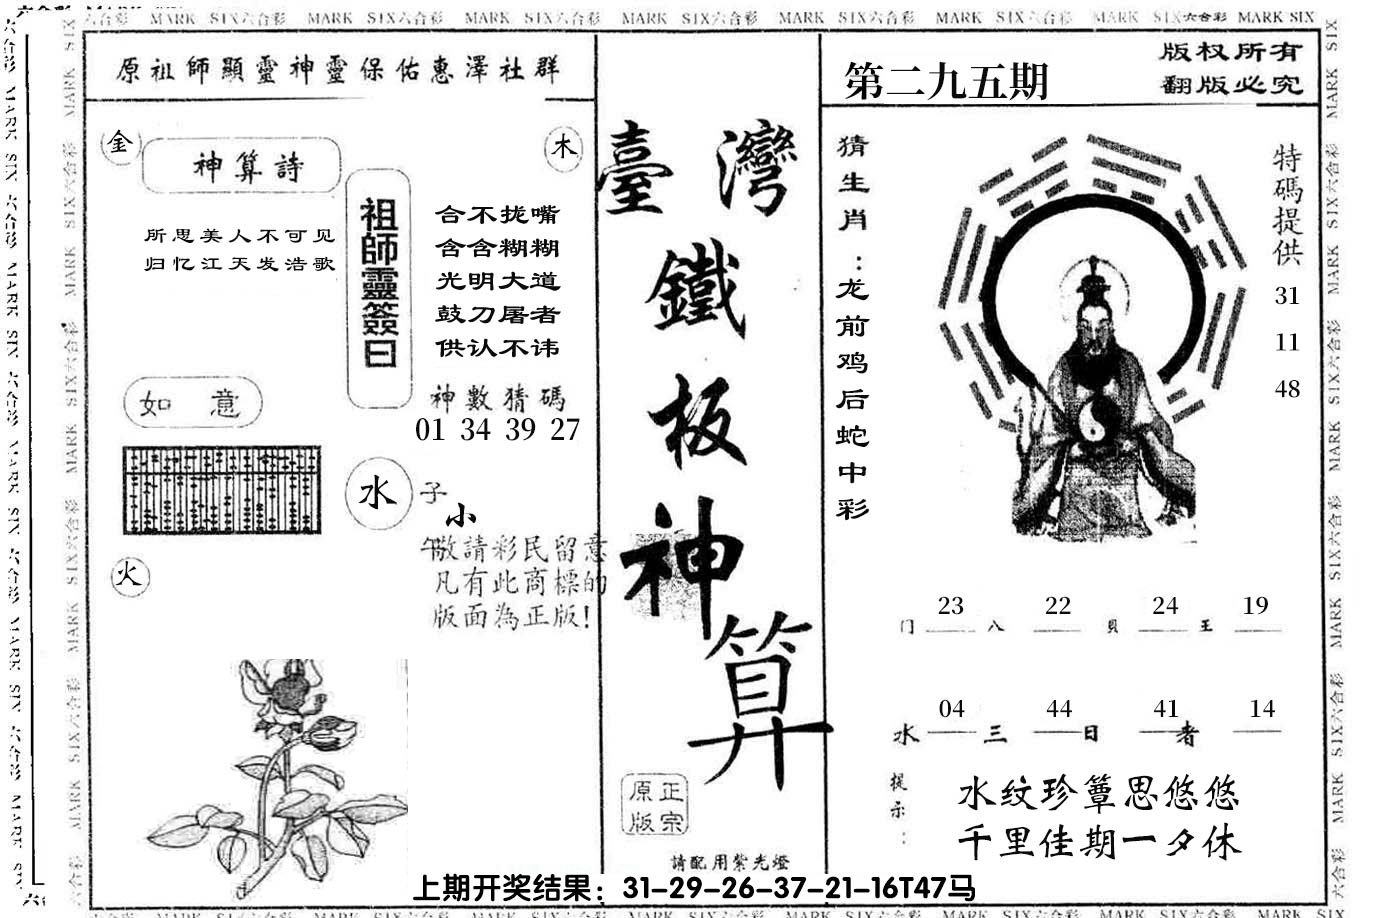 六合彩 MARK SIX六合彩 MARK SIX六合彩 MARK SIX六合彩 MARK SIX六合彩 MARK SIX六合彩 MARK SIX六合彩 MARK SIX六合彩 MARK SIX
原祖師顯靈神靈保佑惠澤社群
金
木
神算詩
所思美人不可见
归忆江天发浩歌
祖師靈簽曰
合不拢嘴
含含糊糊
光明大道
鼓刀屠者
供认不讳
神數猜碼
01 34 39 27
如意
水
子
小
午敬請彩民留意
凡有此商標的
版面為正版!
火
臺灣
鐵
板
神
算
正宗
原版
請配用紫光燈
第二九五期
版权所有
翻版必究
猜生肖:龙前鸡后蛇中彩
特碼提供
31
11
48
门 23 八 22 貝 24 王 19
水 04 三 44 日 41 者 14
提示:
水纹珍簟思悠悠
千里佳期一夕休
上期开奖结果：31-29-26-37-21-16T47马